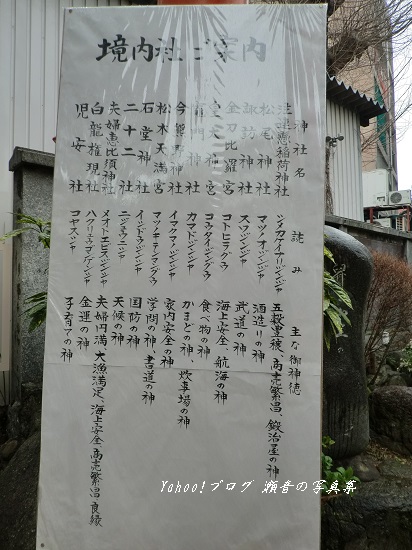 境内社ご案内
神社名 読み 主な御神徳
注連懸稲荷神社 シメカケイナリジンジャ 五穀豊穣、商売繁昌、鍛冶屋の神
松尾神社 マツノオジンジャ 酒造りの神
諏訪神社 スワジンジャ 武道の神
金刀比羅宮 コトヒラグウ 海上安全、航海の神
皇大神宮 コウタイジングウ 食べ物の神
竈門神社 カマドジンジャ かまどの神、炊事場の神
今熊野神社 イマクマノジンジャ 家内安全の神
松木天満宮 マツキテンマングウ 学問の神、書道の神
石堂神社 イシドウジンジャ 国防の神
二十二社 ニジュウニシャ 天候の神
夫婦恵比須神社 メオトエビスジンジャ 夫婦円満、大漁満足、海上安全、商売繁昌、良縁
白龍権現社 ハクリュウゴンゲンシャ 金運の神
児安社 コヤスシャ 子育ての神
Yahoo!ブログ 瀬音の写真集